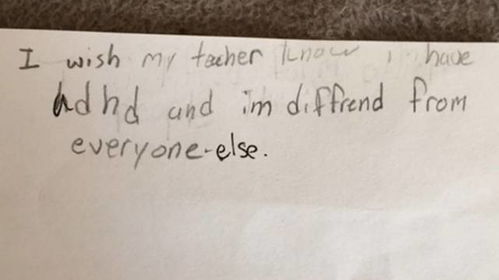 I wish my tacher know i have
Adhd and im diffrend from
everyone-else.